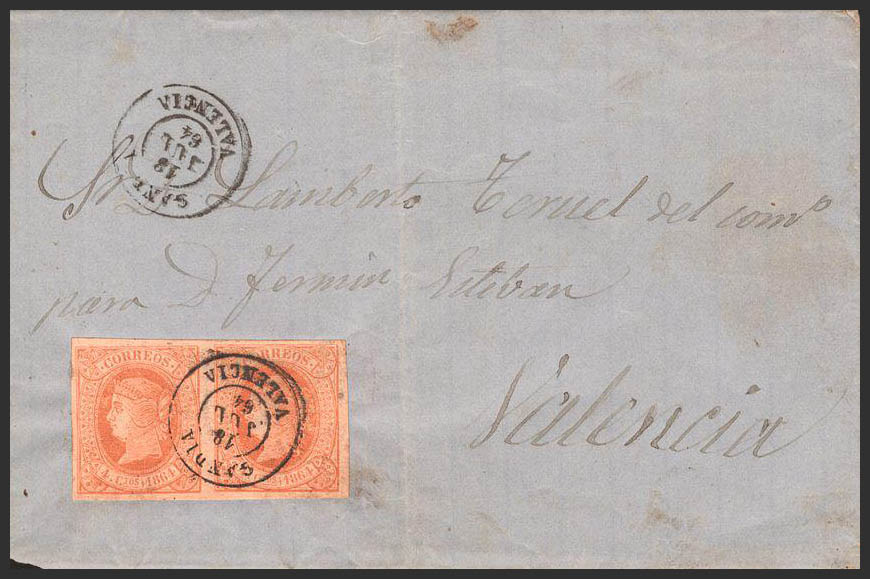 GANDIA
12
JUL
64
VALENCIA
Sr D. Lamberto Teruel del comº
para D. Fermin Esteban
CORREOS CORREOS
4. Ctos 1864 1864
GANDIA
12
JUL
64
VALENCIA
Valencia